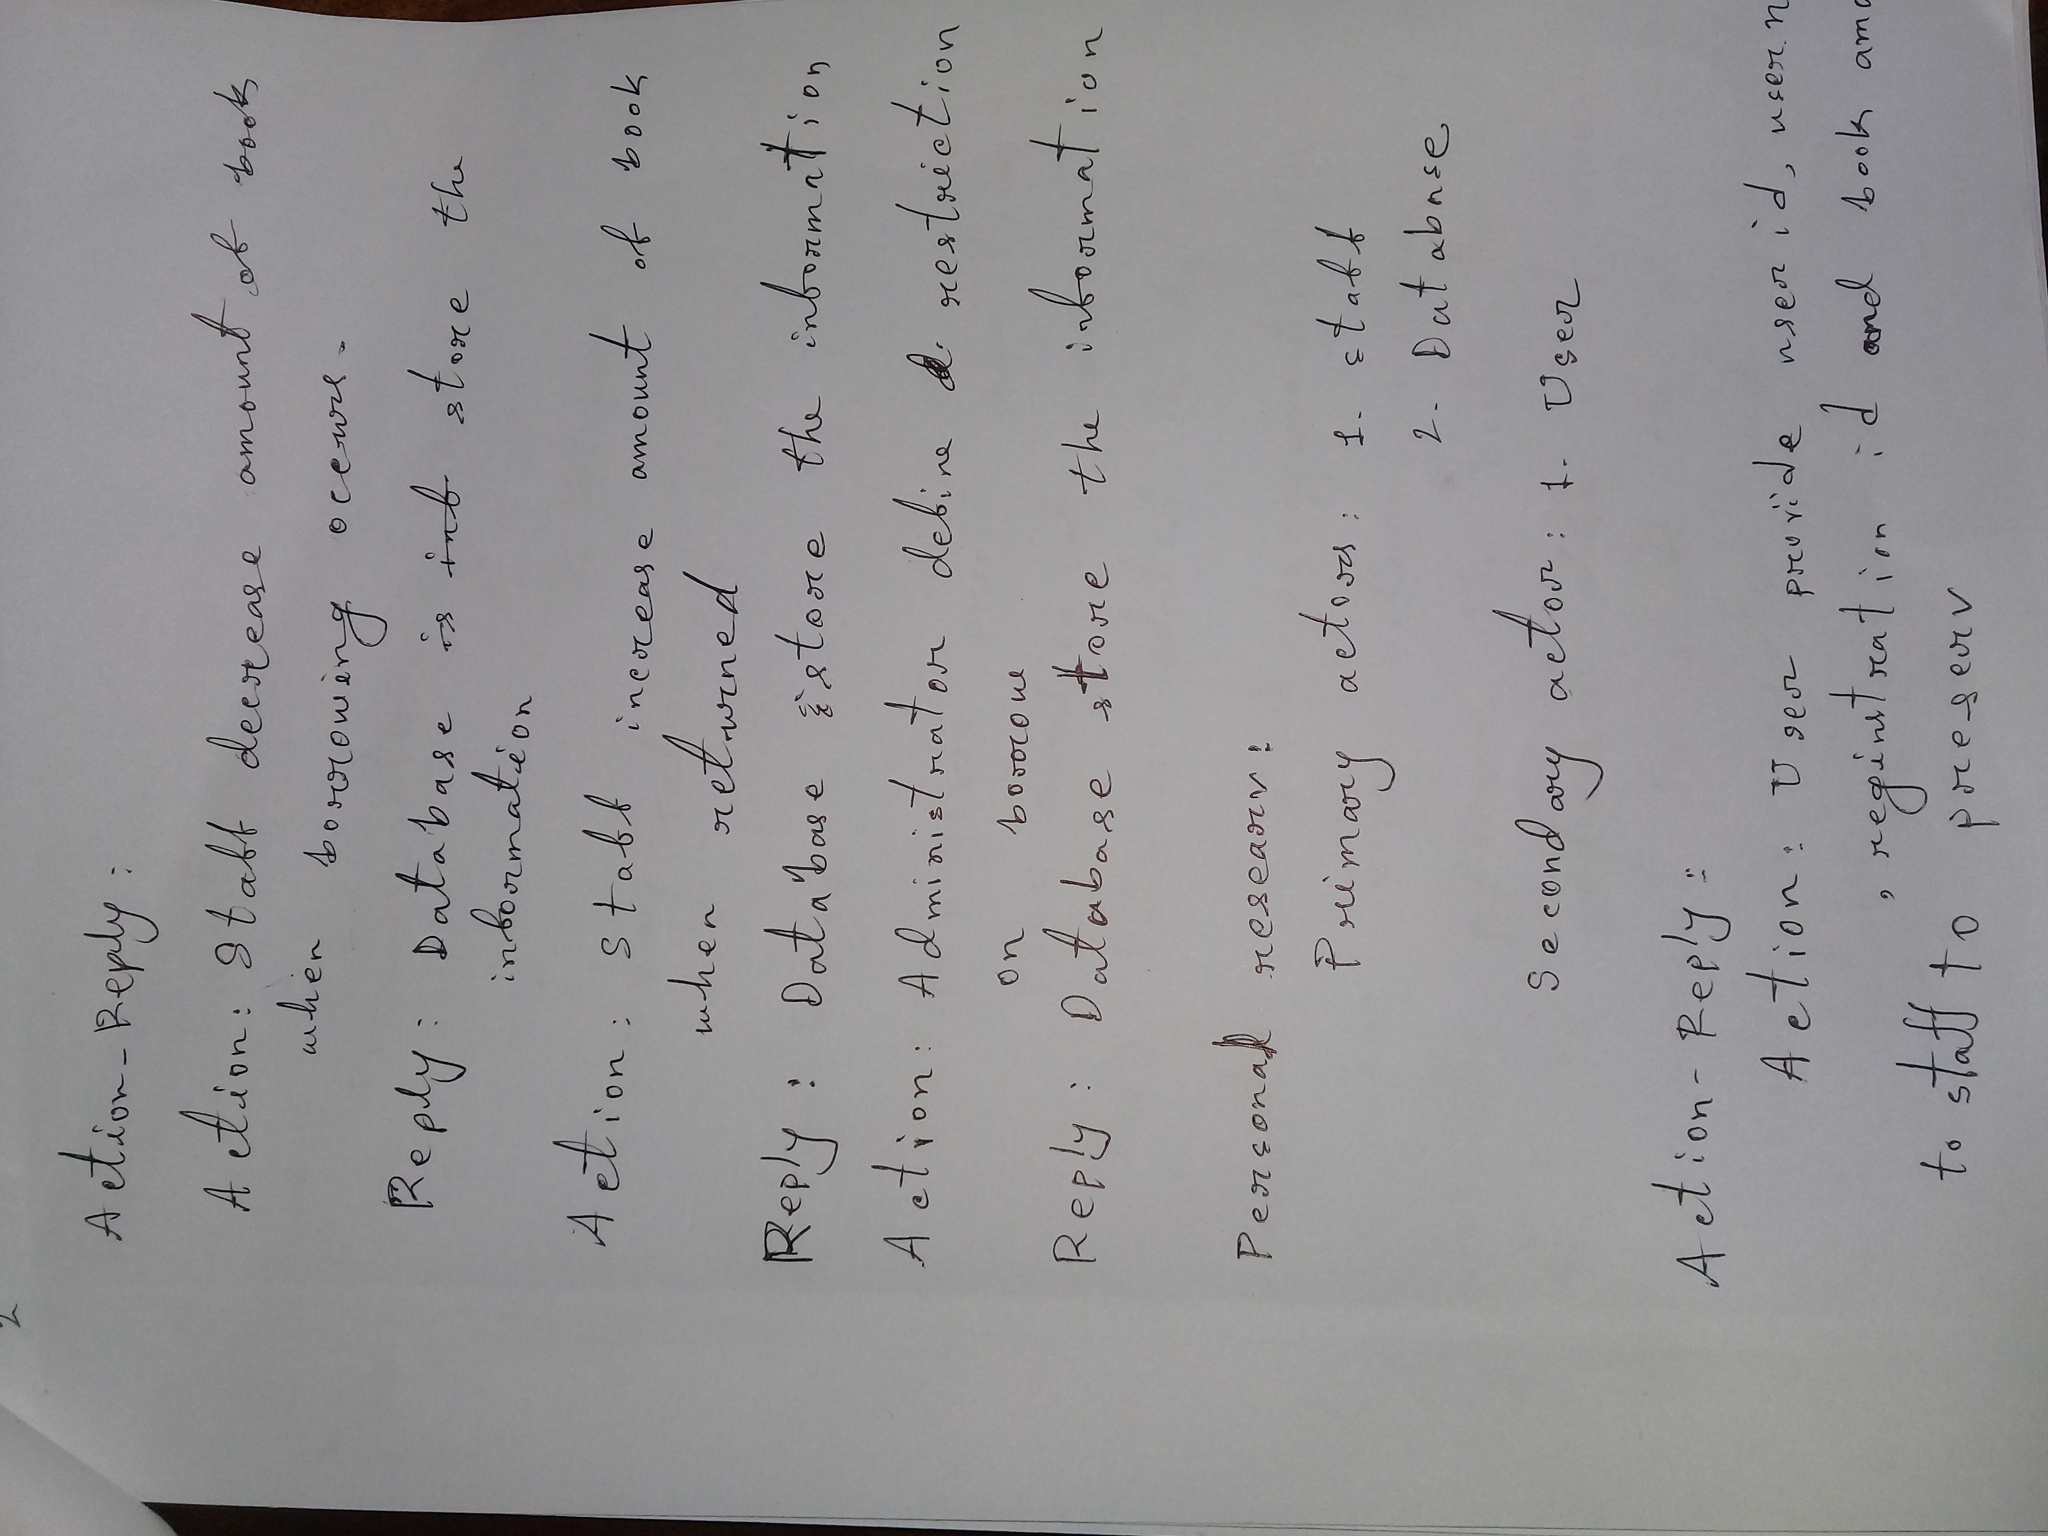 2
Action-Reply:
Action: Staff decrease amount of book
when borrowing occurs.
Reply: Database is inf store the
information
Action: Staff increase amount of book
when returned
Reply: Database store the information
Action: Administrator define restriction
on borrow
Reply: Database store the information
Personal researv:
Primary actors: 1. staff
2. Database
Secondary actor: 1. User
Action-Reply:
Action: User provide user id, user n
, reginstration id and book amo
to staff to preserv